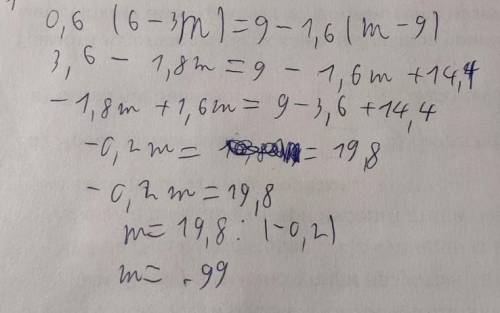 0,6 (6-3m)=9-1,6(m-9)
3,6 - 1,8m=9 - 1,6m+14,4
-1,8m+1,6m= 9-3,6+14,4
-0,2m= = 19,8
-0,2m=19,8
m= 19,8 : (-0,2)
m= -99